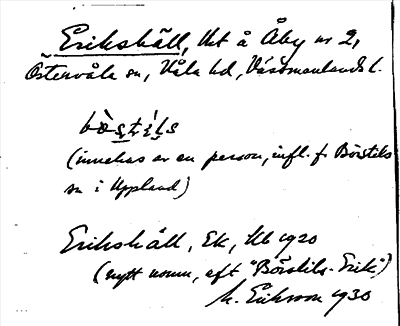 Erikshäll, Uht å Åby nr 2,
Östervåla sn, Våla hd, Västmanlands l.
bòṣtíḷs
(innehas av en person, infl. fr Börstils
sn i Uppland)
Erikshäll, EK, Ub 1920
(nytt namn, eft "Börstils-Erik")
M. Eriksson 1930